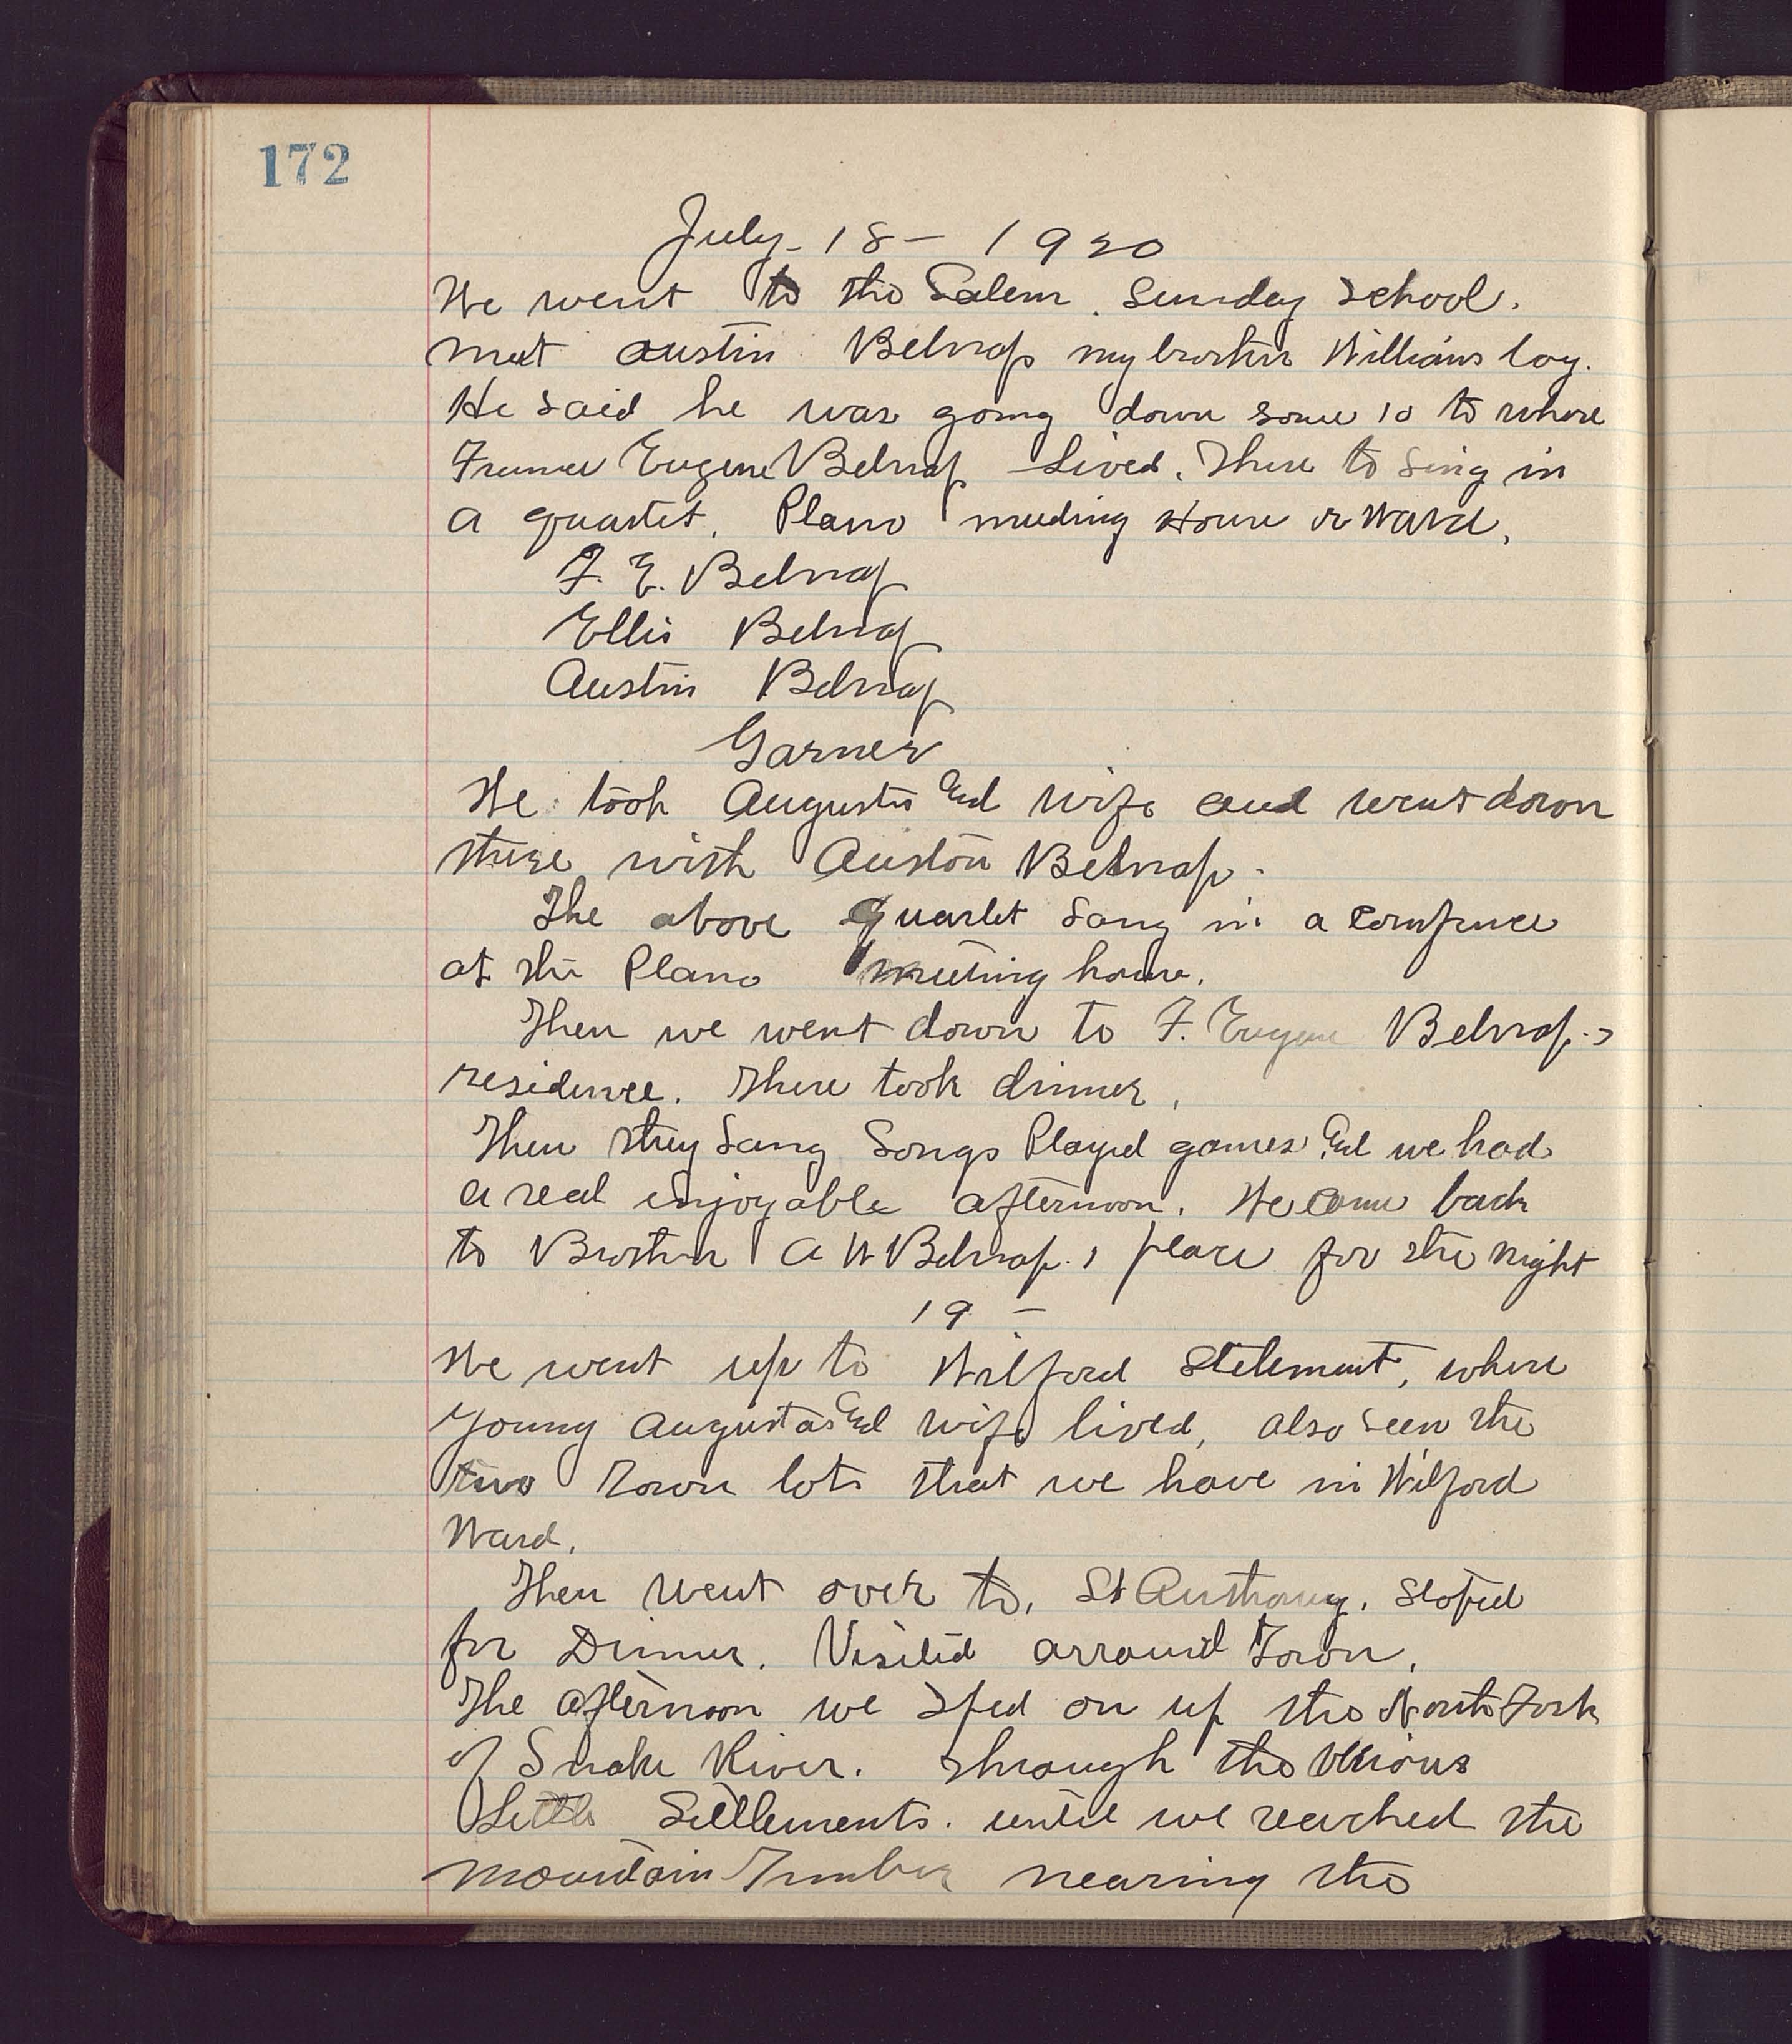 172
July. 18 - 1920
We went to the Salem. Sunday School.
met Austin Belnap my brother Williams boy.
He said he was going down some 10 to where
Francis Eugene Belnap Lived. There to Sing in
a quartet. Plano meeding House or Ward.
F. E. Belnap
Ellis Belnap
Austin Belnap
Garner
We took Augustus and wife and went down
there with Auston Belnap.
The above Quartet Sang in a Confrnce
at the Plano meeting house.
Then we went down to F. Eugene Belnap.s
residence. There took dinner.
Then they Sang Songs Played games and we had
a real enjoyable afternoon. We came back
to Brother A W Belnap.s place for the night
19 -
We went up to Wilford Stelement, where
Young Augustas and wife lived, also seen the
two Town lots that we have in Wilford
Ward.
Then went over to, St Anthony. Stoped
for Dinner. Visited arround Town.
The afternoon we Sped on up the North Fork
of Snake River. Through the Various
Little Settlements. until we reached the
Mountain Timber nearing the